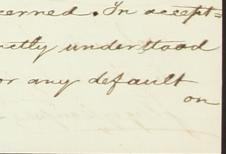 cerned. In accept=
rictly understood
or any default
on